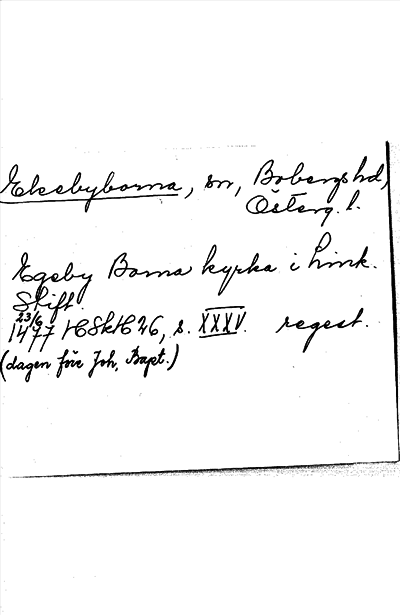 Ekebyborna, sn, Bobergs hd,
Österg. l.
Egeby Borna kyrka i Link.
Stift.
23/6
1477 HSkH 26, s. XXXV. regest.
(dagen före Joh. Bapt.)